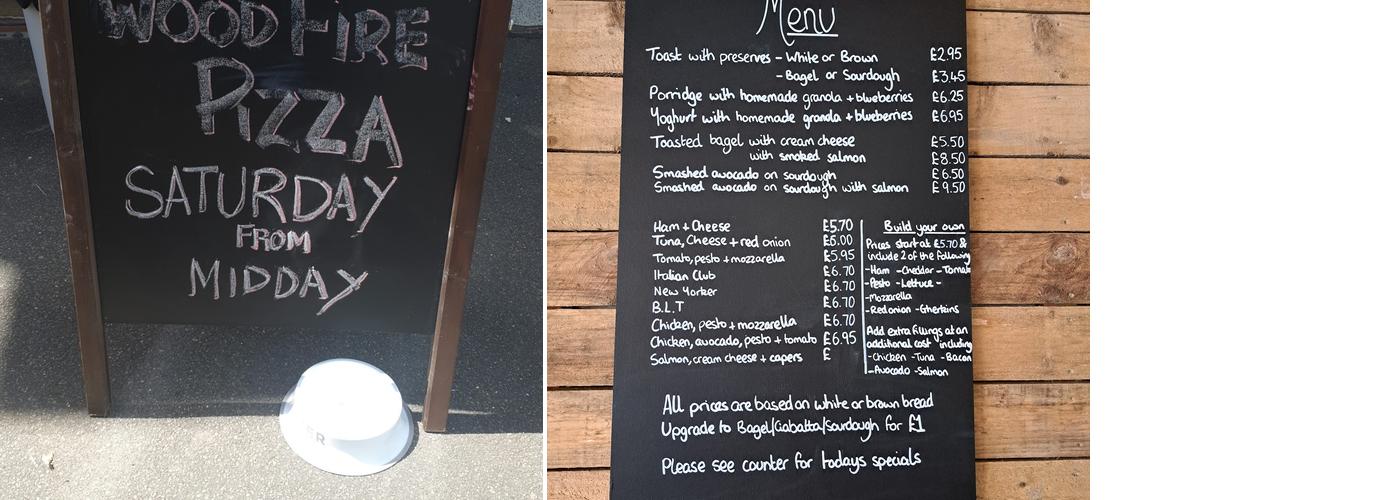 WOOD FIRE
PIZZA
SATURDAY
FROM
MIDDAY
ER
Menu
Toast with preserves - White or Brown £2.95
- Bagel or Sourdough £3.45
Porridge with homemade granola + blueberries £6.25
Yoghurt with homemade granola + blueberries £6.95
Toasted bagel with cream cheese £5.50
with smoked salmon £8.50
Smashed avocado on sourdough £6.50
Smashed avocado on sourdough with salmon £9.50
Ham + Cheese £5.70
Tuna, Cheese + red onion £6.00
Tomato, pesto + mozzarella £5.95
Italian Club £6.70
New Yorker £6.70
B.L.T £6.70
Chicken, pesto + mozzarella £6.70
Chicken, avocado, pesto + tomato £6.95
Salmon, cream cheese + capers £
Build your own
Prices start at £5.70 &
include 2 of the following
-Ham -Cheddar -Tomato
-Pesto -Lettuce -
-Mozzarella
-Red onion -Gherkins
Add extra fillings at an
additional cost including
-Chicken -Tuna -Bacon
-Avocado -Salmon
All prices are based on white or brown bread
Upgrade to Bagel/Ciabatta/Sourdough for £1
Please see counter for todays specials